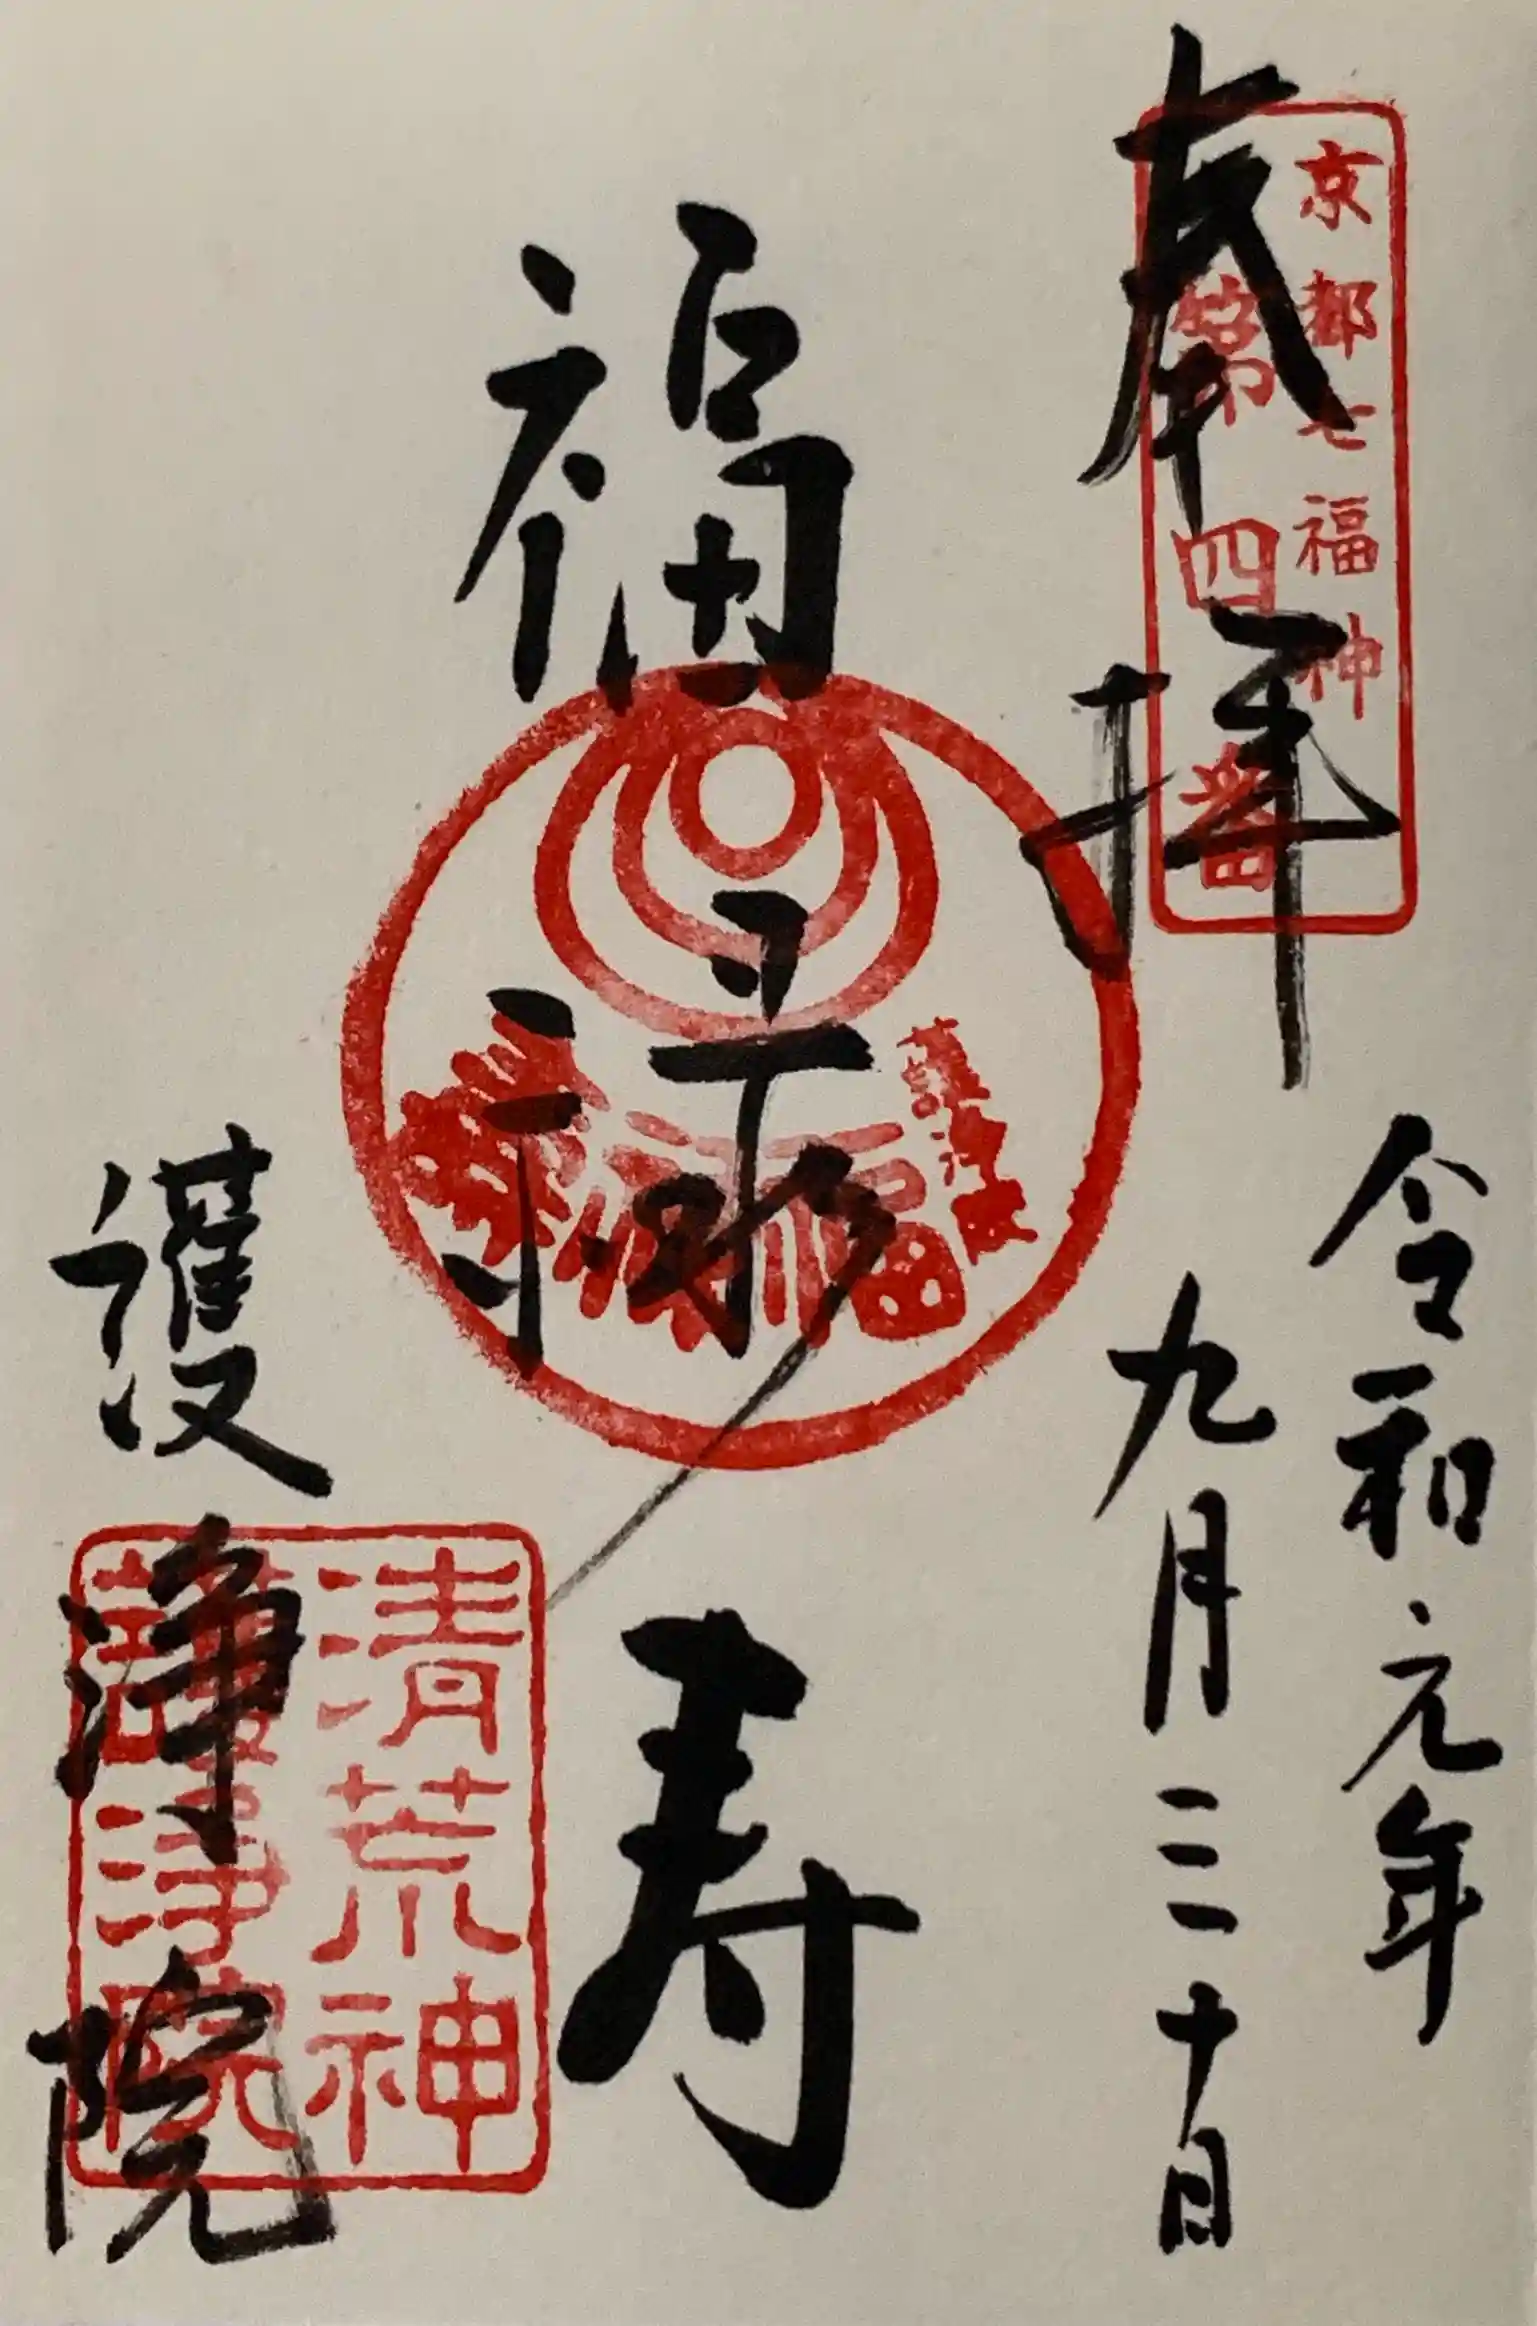 奉拝
京都七福神
第四番
令和元年
九月三十日
福禄寿
護浄院
清荒神
護浄院